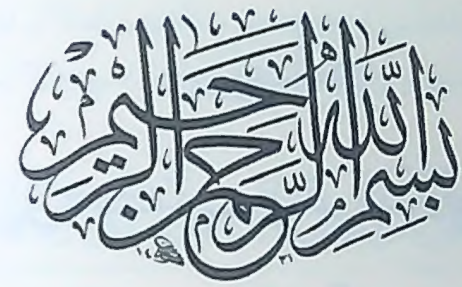 بِسْمِ اللَّهِ الرَّحْمَٰنِ الرَّحِيمِ
١٤ ٣١